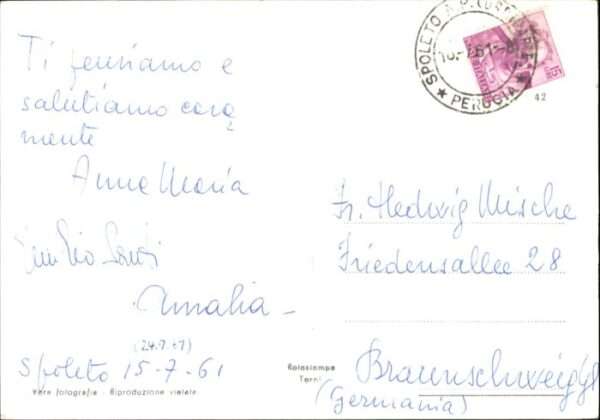 Ti pensiamo e
salutiamo cara
mente
Anna Maria
Amalia
(24.7.+7)
Spoleto 15-7-61
Vere fotografie - Riproduzione vietata
SPOLETO A.P. (CORR. PACCHI)
PERUGIA
15
42
Fr. Hedwig Mische
Friedensallee 28
Rotostampa
Terni
Braunschweig
(Germania)